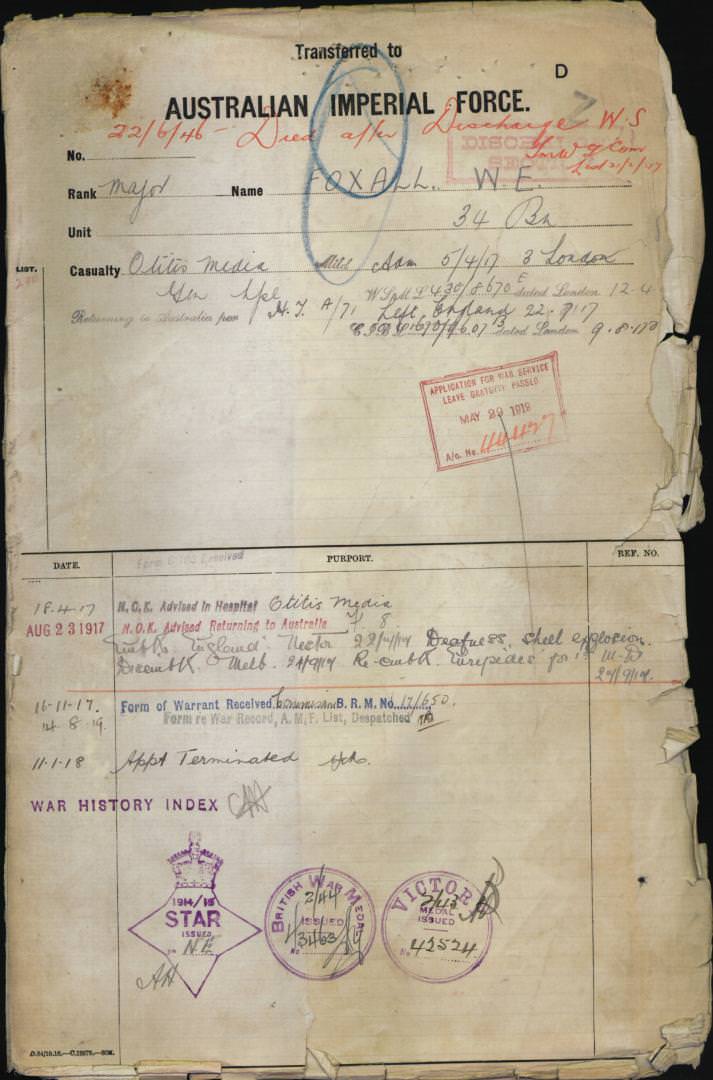 Transferred to
D
AUSTRALIAN IMPERIAL FORCE.
22/6/46 - Died after Discharge W.S
No.
Rank Major Name FOXALL. W.E.
Unit 34 Bn
LIST.
Casualty Otitis Media Mild Adm 5/4/17 3 London
Gen Hpl W.S. L 430/8670 dated London 12.4
Returning to Australia per H.T. A/71 Left England 22.7.17
dated London 9.8.17
APPLICATION FOR WAR SERVICE
LEAVE GRATUITY PASSED
MAY 29 1919
A/c. No. 44427
DATE. PURPORT. REF. NO.
18.4.17 N.O.K. Advised in Hospital Otitis Media
AUG 23 1917 N.O.K. Advised Returning to Australia
Embk. England Nestor 22/7/17 Deafness, shell explosion.
Disembk Melb. 24/9/17 Re-embk. Euripides for 1st M.D
27/9/17.
16-11-17. Form of Warrant Received B.R.M. No. 17/650.
14.8.19. Form re War Record, A.M.F. List, Despatched
11.1.18 Appt Terminated
WAR HISTORY INDEX
1914/15
STAR
ISSUED
N.E
BRITISH WAR MEDAL
2/44
ISSUED
No
VICTORY
2/43
MEDAL
ISSUED
No 42524
D.84/10.16.—C.15879.—50M.